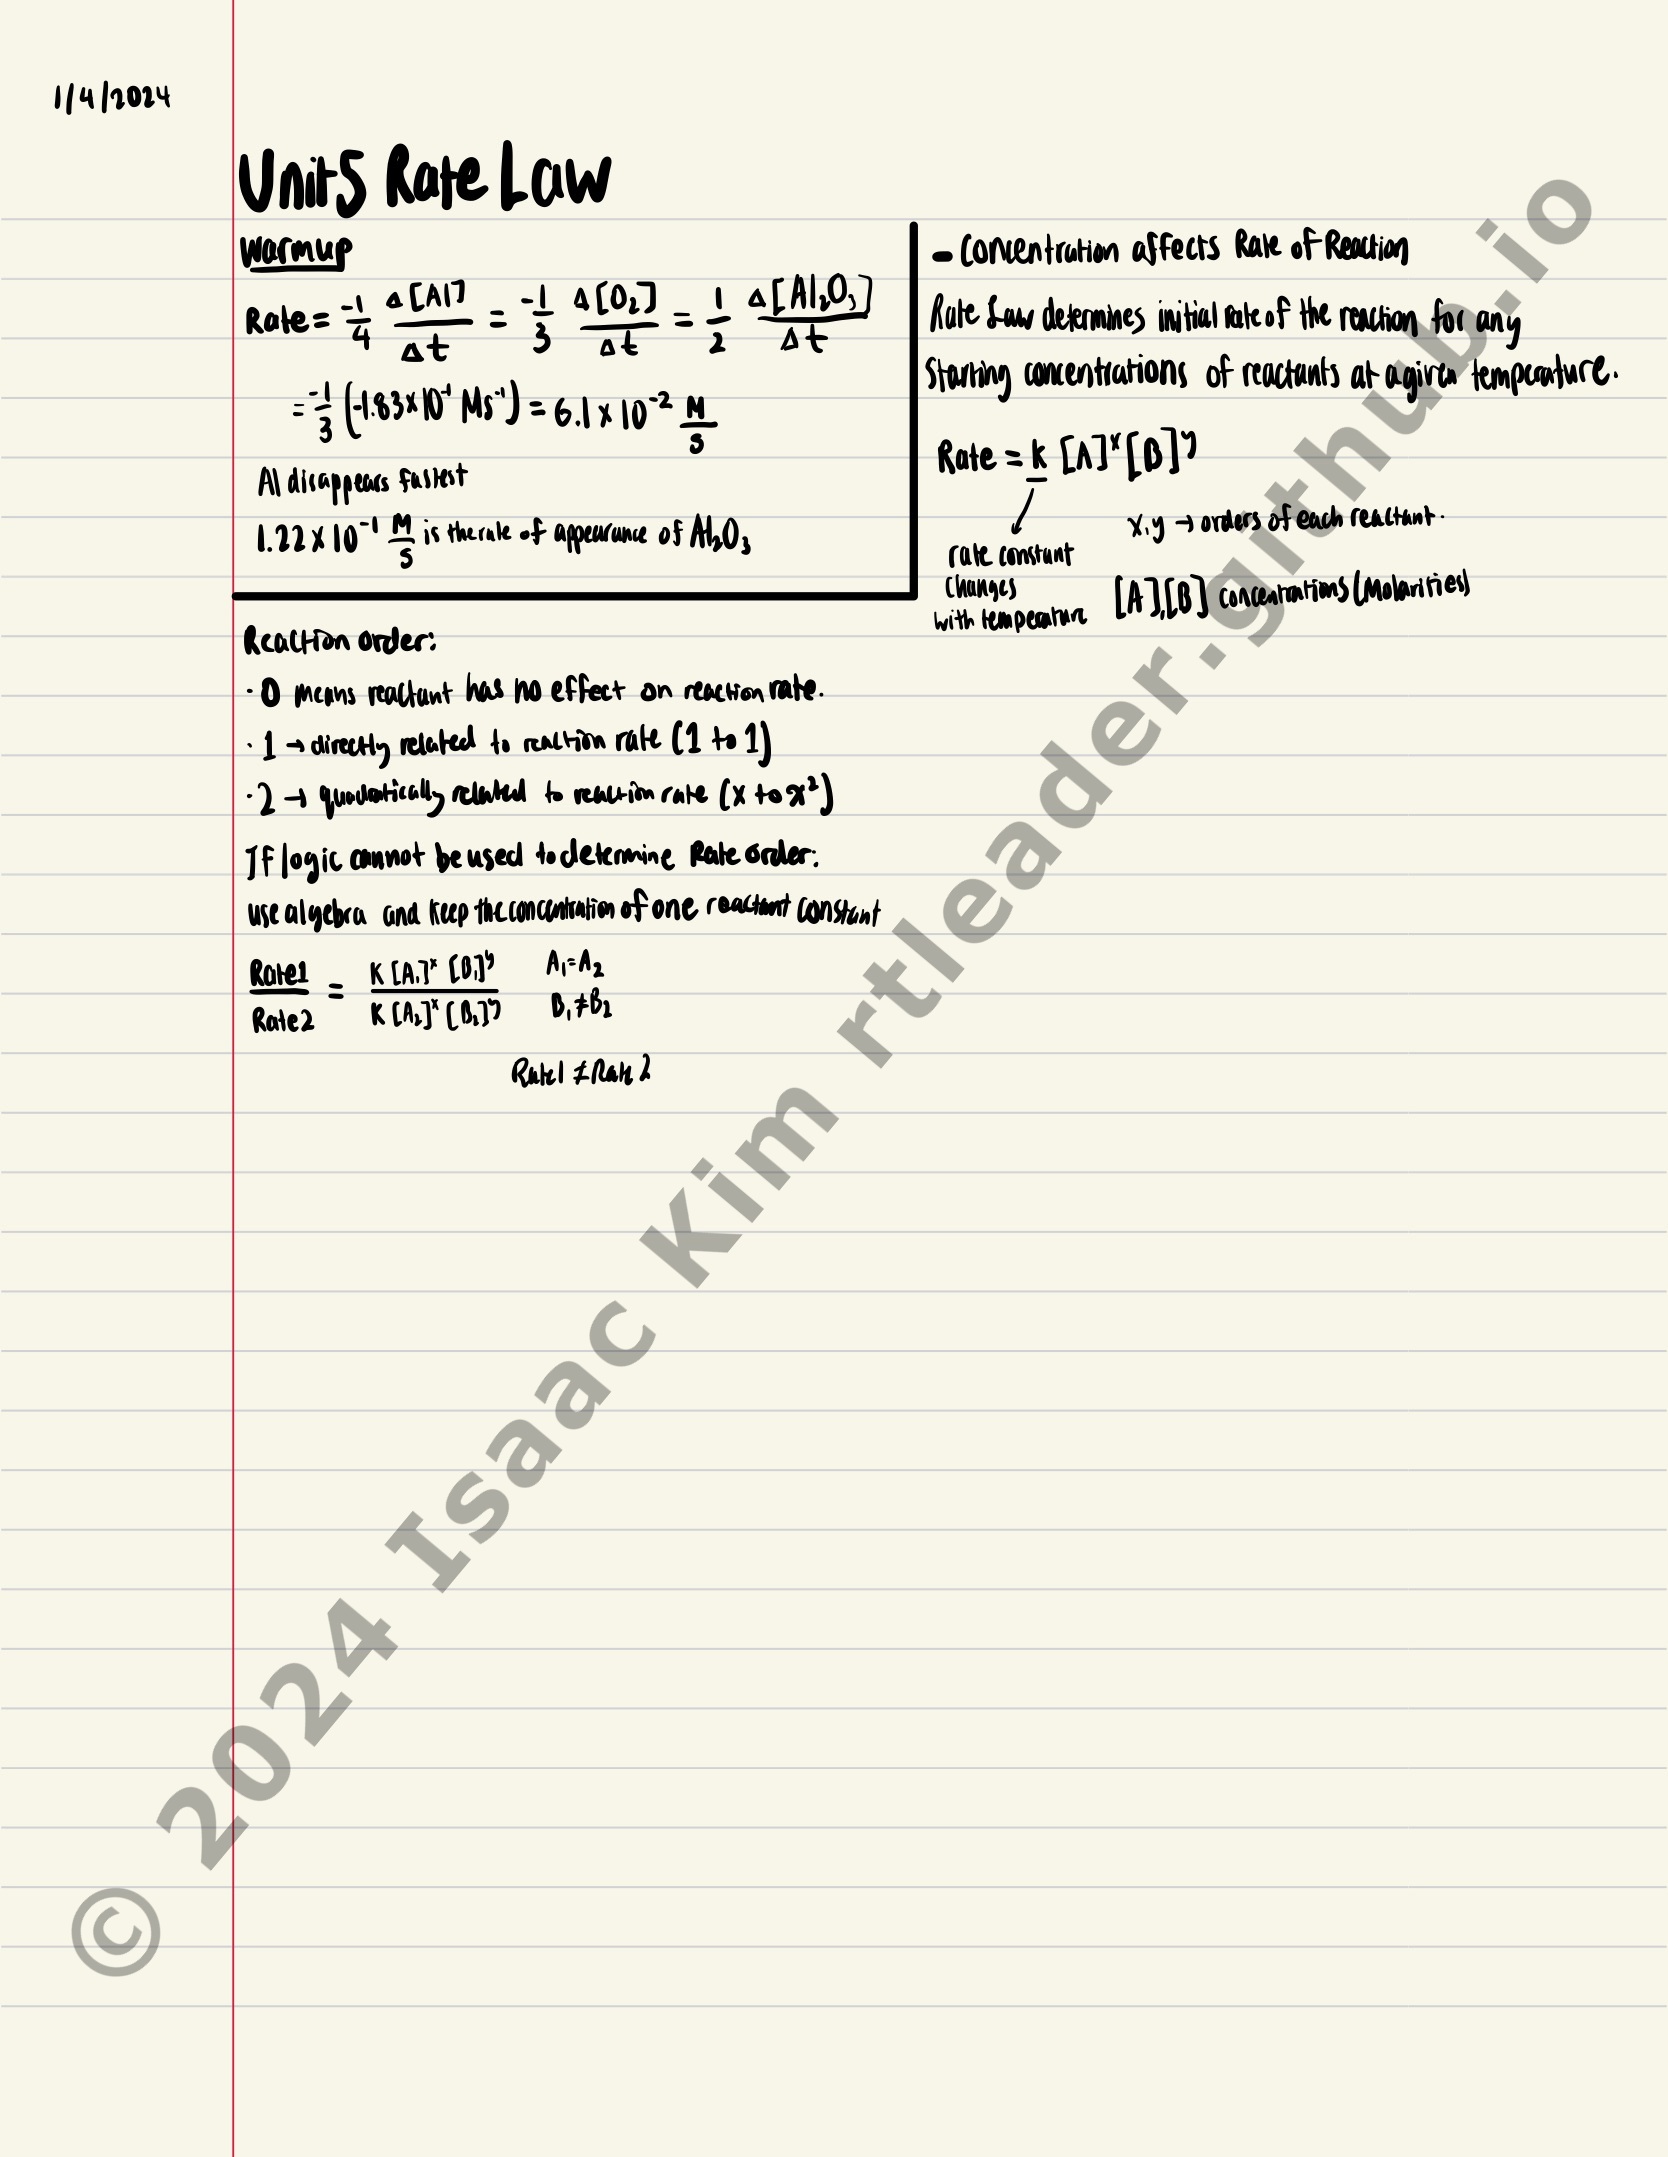 1/4/2024
Unit5 Rate Law
Warmup
Rate = -1/4 Δ[Al]/Δt = -1/3 Δ[O₂]/Δt = 1/2 Δ[Al₂O₃]/Δt
= -1/3 (-1.83x10⁻¹ Ms⁻¹) = 6.1 x 10⁻² M/s
Al disappears fastest
1.22 x 10⁻¹ M/s is the rate of appearance of Al₂O₃
- Concentration affects Rate of Reaction
Rate Law determines initial rate of the reaction for any
Starting concentrations of reactants at a given temperature.
Rate = k [A]ˣ[B]ʸ
x,y → orders of each reactant.
rate constant
changes
with temperature
[A],[B] concentrations (Molarities)
Reaction order:
· 0 means reactant has no effect on reaction rate.
· 1 → directly related to reaction rate (1 to 1)
· 2 → quadratically related to reaction rate (x to x²)
If logic cannot be used to determine Rate order:
use algebra and keep the concentration of one reactant constant
Rate1/Rate2 = K[A₁]ˣ[B₁]ʸ/K[A₂]ˣ[B₂]ʸ
A₁=A₂
B₁≠B₂
Rate1 ≠ Rate 2
© 2024 Isaac Kim rtleader.github.io